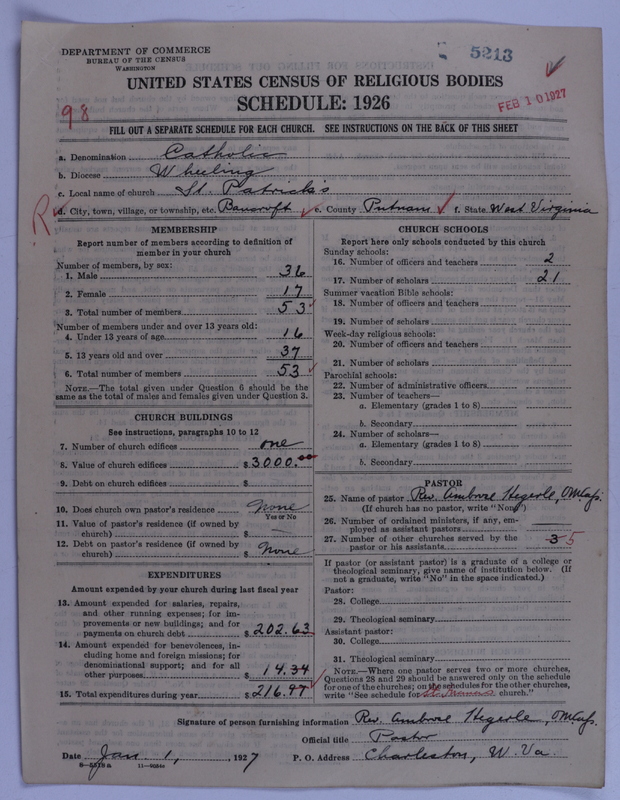 DEPARTMENT OF COMMERCE
BUREAU OF THE CENSUS
WASHINGTON
5213
UNITED STATES CENSUS OF RELIGIOUS BODIES
SCHEDULE: 1926
98
FEB 10 1927
FILL OUT A SEPARATE SCHEDULE FOR EACH CHURCH. SEE INSTRUCTIONS ON THE BACK OF THIS SHEET
a. Denomination Catholic
b. Diocese Wheeling
c. Local name of church St. Patrick's
R
d. City, town, village, or township, etc. Bancroft e. County Putnam f. State West Virginia
MEMBERSHIP
Report number of members according to definition of
member in your church
Number of members, by sex:
1. Male 36
2. Female 17
3. Total number of members 53
Number of members under and over 13 years old:
4. Under 13 years of age 16
5. 13 years old and over 37
6. Total number of members 53
NOTE.—The total given under Question 6 should be
same as the total of males and females given under Question 3.
CHURCH BUILDINGS
See instructions, paragraphs 10 to 12
7. Number of church edifices one
8. Value of church edifices $ 3000.00
9. Debt on church edifices $
10. Does church own pastor's residence none
Yes or No
11. Value of pastor's residence (if owned by
church) $
12. Debt on pastor's residence (if owned by
church) $ None
EXPENDITURES
Amount expended by your church during last fiscal year
13. Amount expended for salaries, repairs,
and other running expenses; for im-
provements or new buildings; and for
payments on church debt $ 202.63
14. Amount expended for benevolences, in-
cluding home and foreign missions; for
denominational support; and for all
other purposes $ 14.34
15. Total expenditures during year $ 216.97
CHURCH SCHOOLS
Report here only schools conducted by this church
Sunday schools:
16. Number of officers and teachers 2
17. Number of scholars 21
Summer vacation Bible schools:
18. Number of officers and teachers
19. Number of scholars
Week-day religious schools:
20. Number of officers and teachers
21. Number of scholars
Parochial schools:
22. Number of administrative officers
23. Number of teachers—
a. Elementary (grades 1 to 8)
b. Secondary
24. Number of scholars—
a. Elementary (grades 1 to 8)
b. Secondary
PASTOR
25. Name of pastor Rev. Ambrose Hegerle, OMCap.
(If church has no pastor, write "None")
26. Number of ordained ministers, if any, em-
ployed as assistant pastors
27. Number of other churches served by the
pastor or his assistants 3 5
If pastor (or assistant pastor) is a graduate of a college or
theological seminary, give name of institution below. (If
not a graduate, write "No" in the space indicated.)
Pastor:
28. College
29. Theological seminary
Assistant pastor:
30. College
31. Theological seminary
NOTE.—Where one pastor serves two or more churches,
Questions 28 and 29 should be answered only on the schedule
for one of the churches; on the schedules for the other churches,
write "See schedule for church."
Signature of person furnishing information Rev. Ambrose Hegerle, OMCap.
Official title Pastor
Date Jan 1, 1927 P. O. Address Charleston, W. Va.
8—5518a 11—9024